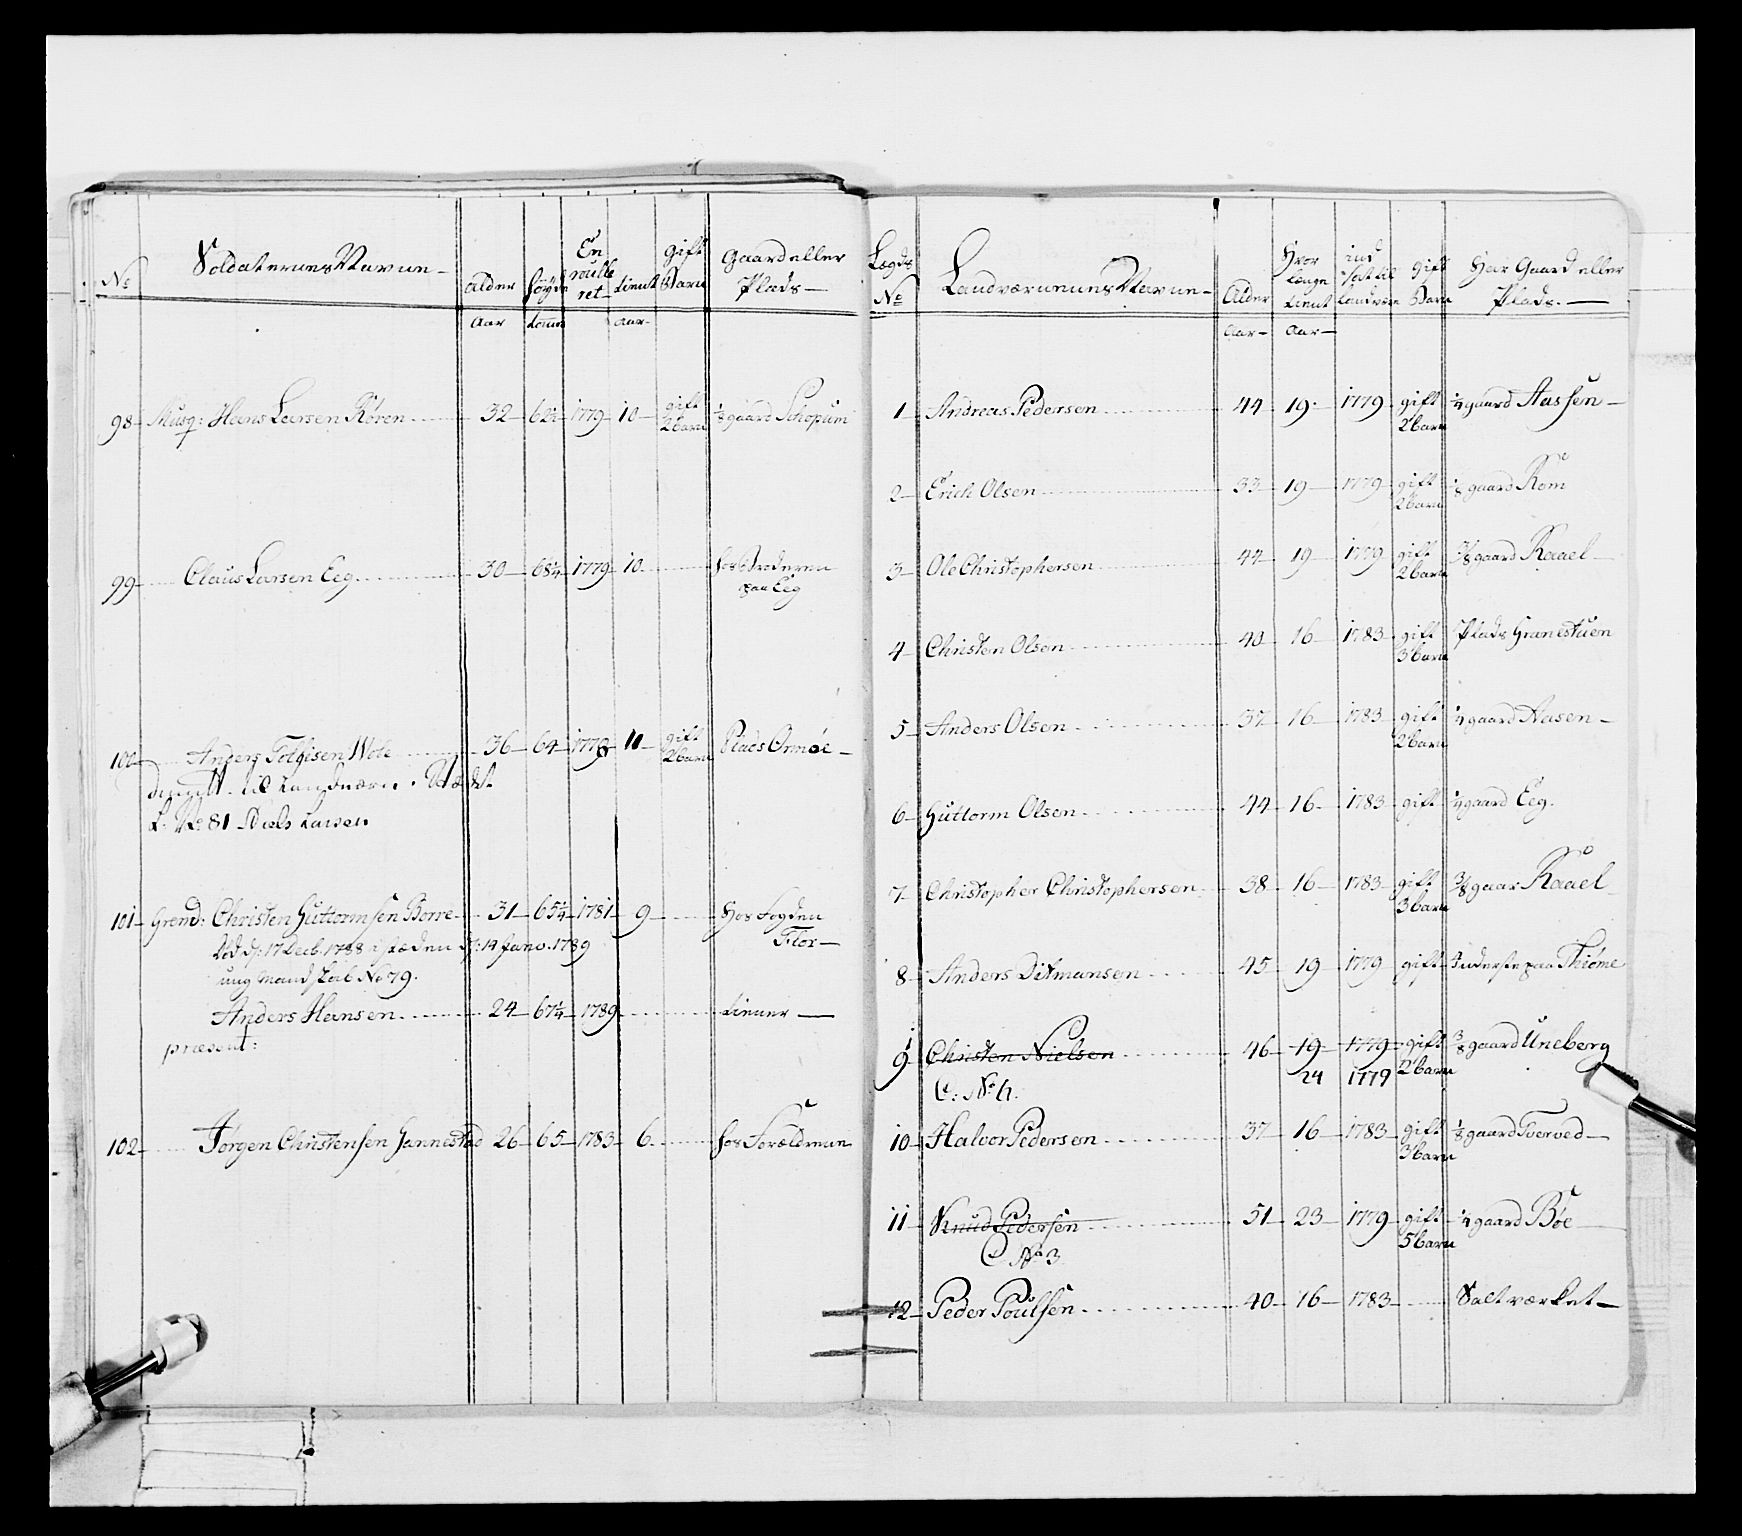 No Soldaternes Navne Alder Höyde Enroulleret tient gift Barn Gaard eller Plads
Aar tomer aar
98 Musq: Hans Larsen Rören 32 62½ 1779 10 gift 2 barn ⅛ gaard Schopum
99 Claus Larsen Eeg 30 68¼ 1779 10 hos Broderen
paa Eeg
100 Anders Tolfisen Wole 36 64 1778 11 gift 2 barn Plads Ormöe
til Landværn
L: No 81 Niels Larsen
101 Grend: Christen Guttormsen Borre 31 65¼ 1781 9 Hos Fogden
Flor
Död d: 17 Decb. 1788 i stæden d: 14 Janv. 1789
ung Mand No 79.
Anders Hansen 24 67¼ 1789 tiener
præsent:
102 Jörgen Christensen Hannestad 26 65 1783 6 hos Forældrene
Lægds No Landværnenes Navne Alder Hvor længe tient ind sat til Landværn gift Barn Har Gaard eller Plads.
Aar Aar
1 Andreas Pedersen 44 19 1779 gift 2 barn ¼ gaard Aassen
2 Erich Olsen 33 19 1779 gift 2 barn ⅛ gaard Rom
3 Ole Christophersen 44 19 1779 gift 2 barn ⅜ gaard Raael
4 Christen Olsen 40 16 1783 gift 3 barn Plads Granestuen
5 Anders Olsen 37 16 1783 gift 2 barn ¼ gaard Aasen
6 Guttorm Olsen 44 16 1783 gift ¼ gaard Eeg.
7 Christopher Christophersen 38 16 1783 gift 3 barn ⅜ gaar Raael
8 Anders Ditmansen 45 19 1779 gift Inderste paa Thiöme
9 Christen Nielsen 46 19 1779 gift 2 barn ⅜ gaard Uneberg
C: No 4. 24 1779
10 Halvor Pedersen 37 16 1783 gift 3 barn ⅛ gaard Tverved
11 Knud Pedersen 51 23 1779 gift 5 barn ¼ gaard Böe
C No 3
12 Peder Poulsen 40 16 1783 Saltværket